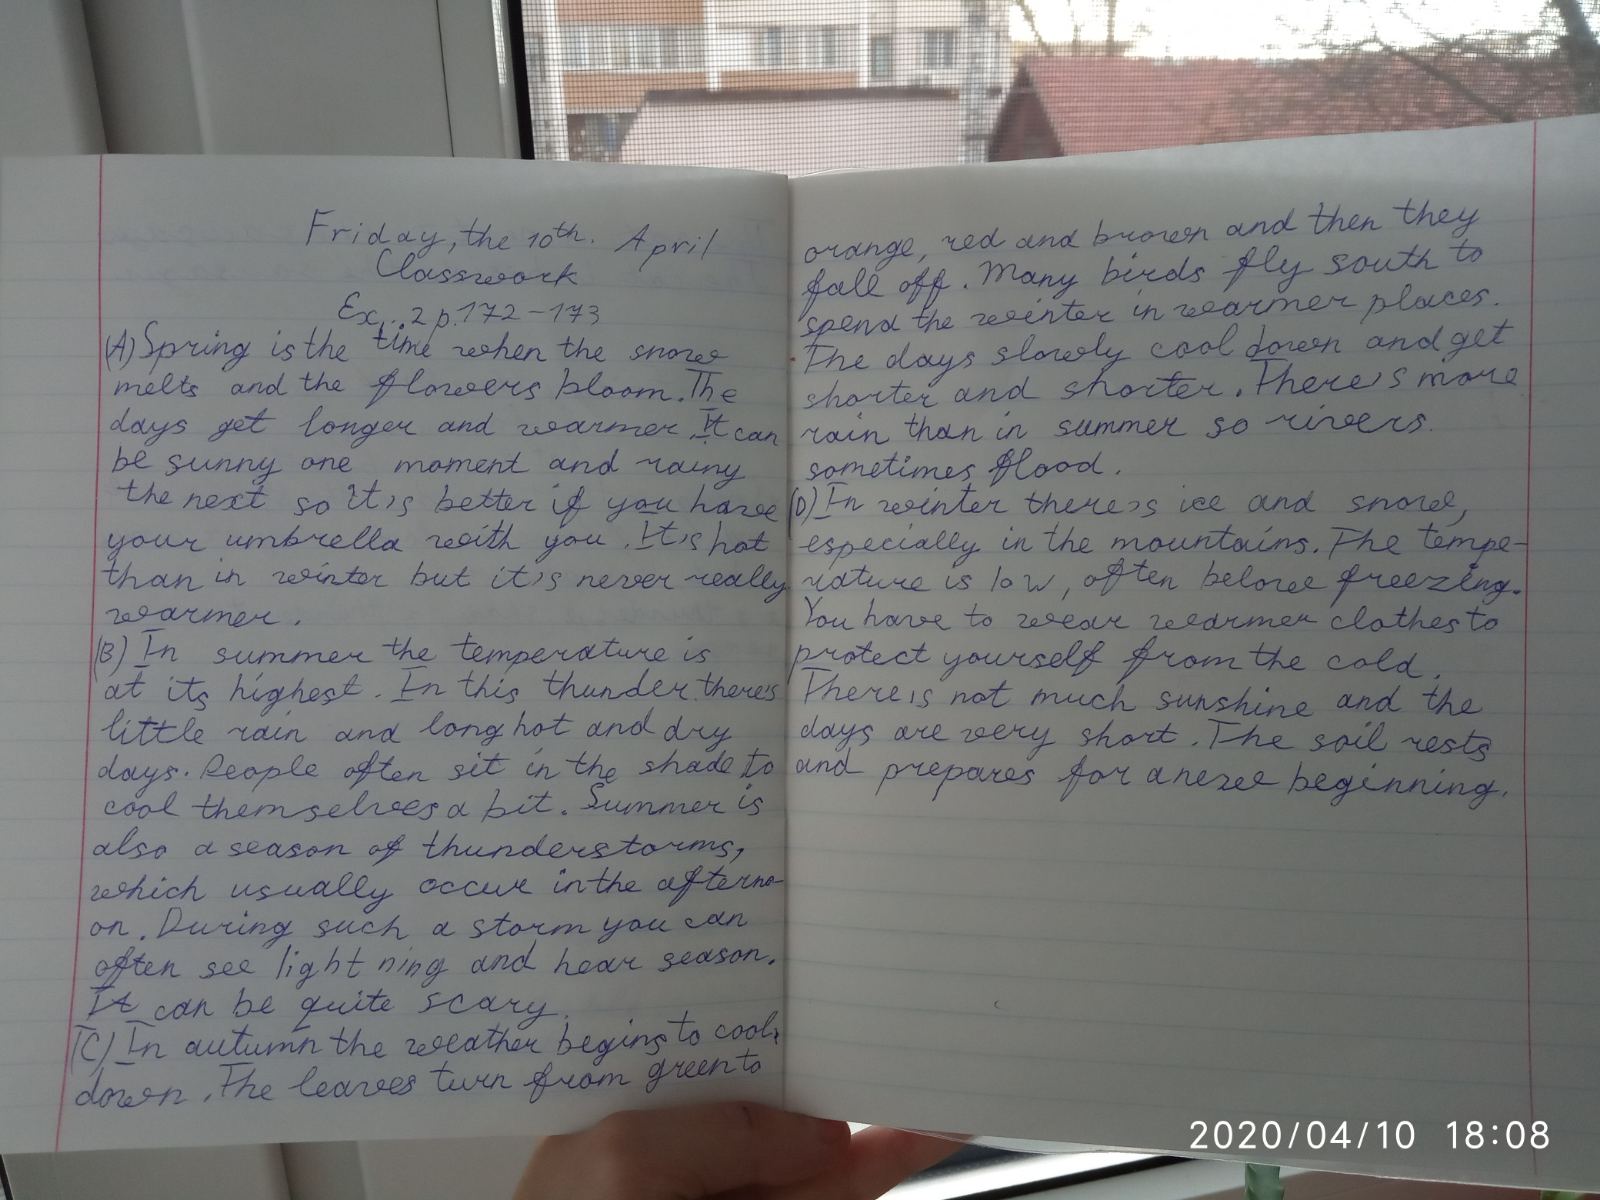 Friday, the 10th. April
Classwork
Ex. 2 p. 172-173
(A) Spring is the time when the snow
melts and the flowers bloom. The
days get longer and warmer. It can
be sunny one moment and rainy
the next so it's better if you have
your umbrella with you. It's hot
than in winter but it's never really
warmer.
(B) In summer the temperature is
at its highest. In this thunder there's
little rain and long hot and dry
days. People often sit in the shade to
cool themselves a bit. Summer is
also a season of thunderstorms,
which usually occur in the afterno-
on. During such a storm you can
often see lightning and hear season.
It can be quite scary.
(C) In autumn the weather begins to cool
down. The leaves turn from green to
orange, red and brown and then they
fall off. Many birds fly south to
spend the winter in warmer places.
The days slowly cool down and get
shorter and shorter. There's more
rain than in summer so rivers.
sometimes flood.
(D) In winter there's ice and snow,
especially in the mountains. The tempe-
rature is low, often below freezing.
You have to wear warmer clothes to
protect yourself from the cold.
There's not much sunshine and the
days are very short. The soil rests
and prepares for a new beginning.
2020/04/10 18:08